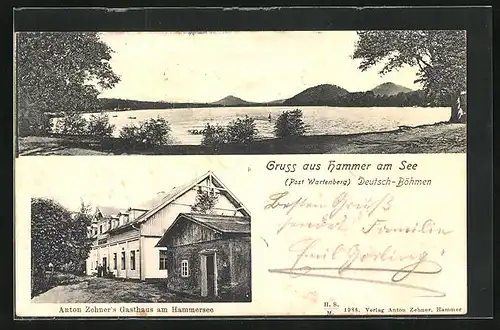 Gruss aus Hammer am See
(Post Wartenberg) Deutsch-Böhmen
Besten Gruß
sendet Familie
Emil
Anton Zehner's Gasthaus am Hammersee
H. S.
M. 1988, Verlag Anton Zehner, Hammer